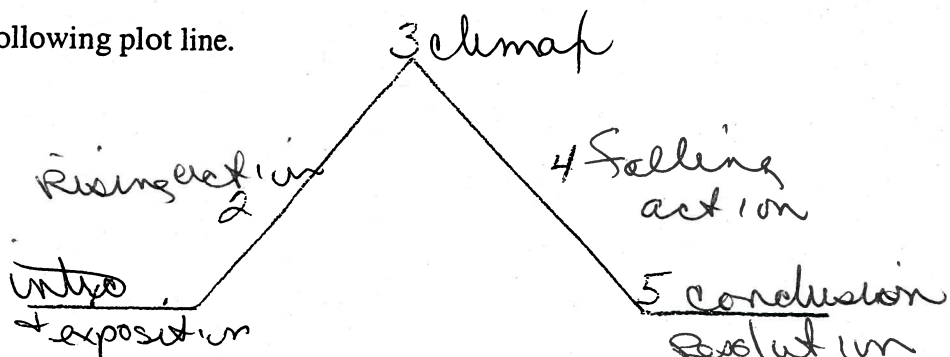 ollowing plot line.
3 climax
Rising action
2
4 Falling
action
intro
+ exposition
5 conclusion
Resolution